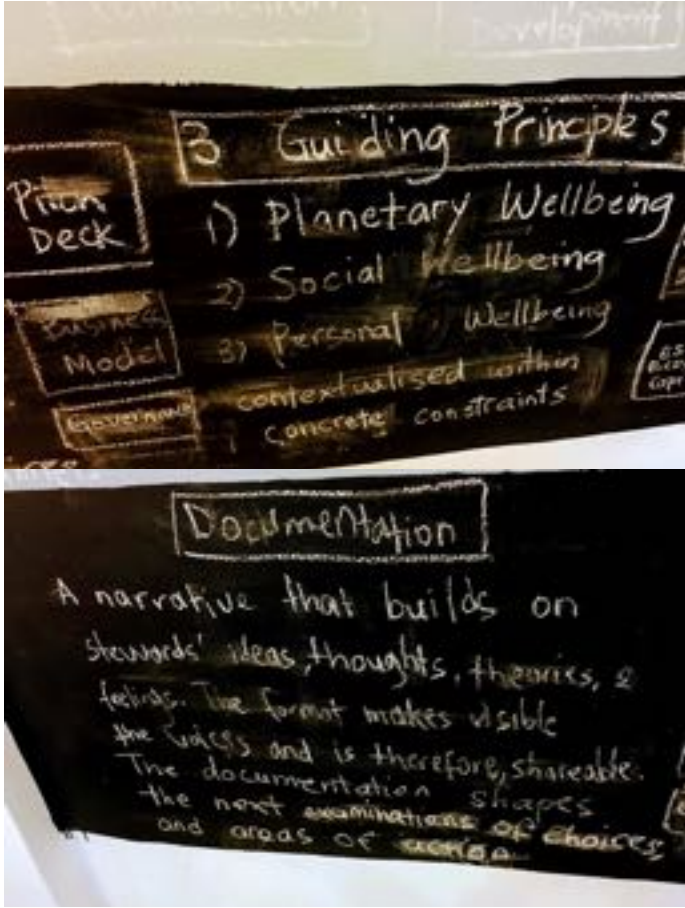 Development
3 Guiding Principles
Pitch
Deck
1) Planetary Wellbeing
2) Social Wellbeing
3) Personal Wellbeing
contextualised within
concrete constraints
Business
Model
Governance
Documentation
A narrative that builds on
stewards' ideas, thoughts, theories, &
feelings. The format makes visible
the voices and is therefore, shareable.
The documentation shapes
the next examinations of choices,
and areas of action